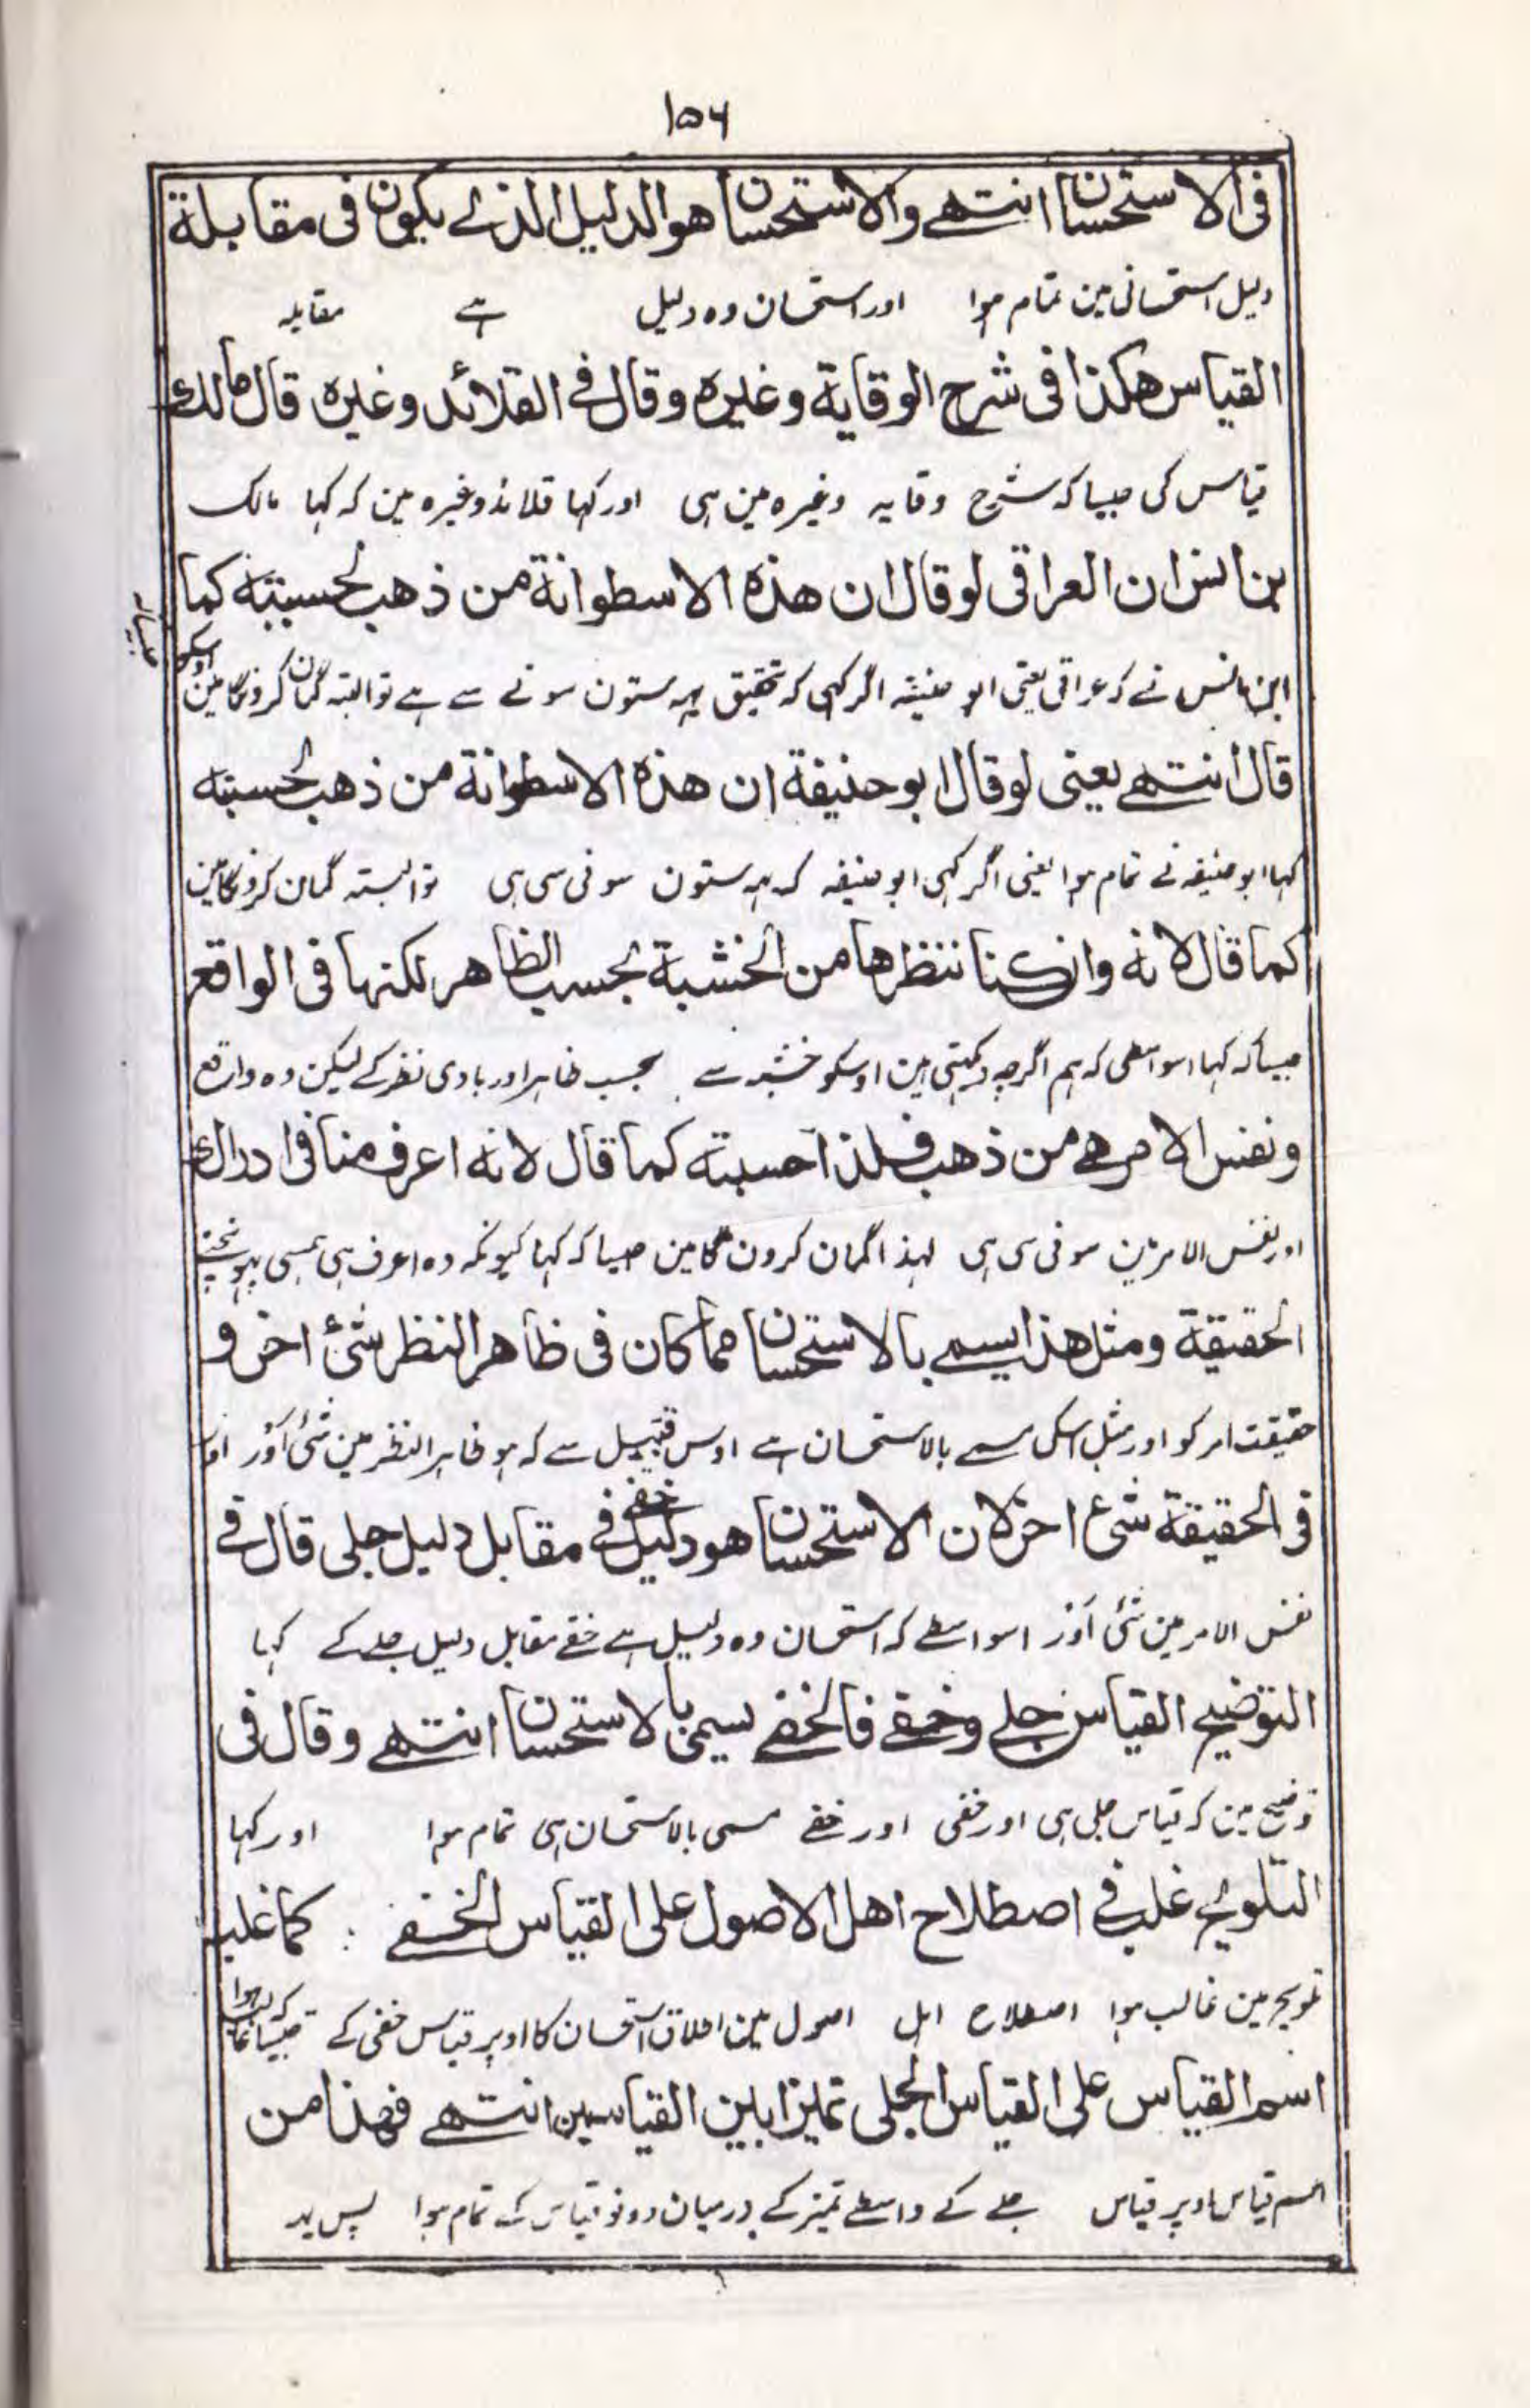 ۱۵۶
فی الاستحسان انتهے والاستحسان هو الدلیل الذے یکون فی مقابلة
دلیل استحسانی مین تمام ہوا اور استحسان وہ دلیل ہے مقابلہ
القیاس هکذا فی شرح الوقایة وغیره وقال فے القلائد وغیره قال مالك
قیاس کی جیسا کہ شرح وقایہ وغیرہ مین ہی اور کہا قلائد وغیرہ مین کہ کہا مالک
بن انس ان العراقی لو قال ان هذه الاسطوانة من ذهب لحسبته کما
ابن انس نے کہ عراقی یعنی ابو حنیفہ اگر کہی کہ تحقیق یہہ ستون سونے سے ہے تو البتہ گمان کرونگا مین اوسکو
قال انتهے یعنی لو قال ابو حنیفة ان هذه الاسطوانة من ذهب لحسبته
کہا ابو حنیفہ نے تمام ہوا یعنی اگر کہی ابو حنیفہ کہ یہہ ستون سونی سی ہی تو البتہ گمان کرونگا مین
کما قال لانه وان کنا ننظرها من الخشبة بحسب الظاهر لکنها فی الواقع
جیسا کہ کہا اسواسطی کہ ہم اگرچہ دیکہتی ہین اوسکو خشبہ سے بحسب ظاہر اور بادی نظر کے لیکن وہ واقع
ونفس الامر هے من ذهب فلذا حسبته کما قال لانه اعرف منا فی ادراك
اور نفس الامر مین سونی سی ہی لہذا گمان کرون گا مین جیسا کہ کہا کیونکہ وہ اعرف ہی ہمسی پہونچنے
الحقیقة ومثل هذا یسمے بالاستحسان مما کان فی ظاهر النظر شئ اخر و
حقیقت امر کو اور مثل اسکی مسمے بالاستحسان ہے اوس قبیل سے کہ ہو ظاہر النظر مین شئ اور اور
فی الحقیقة شئ اخر لان الاستحسان هو دلیل خفے فے مقابل دلیل جلی قال فے
نفس الامر مین شئ اور اسواسطے کہ استحسان وہ دلیل ہے خفے مقابل دلیل جلے کے کہا
التوضیح القیاس جلے وخفے فالخفے یسمی بالاستحسان انتهے وقال فی
توضیح مین کہ قیاس جلی ہی اور خفی اور خفے مسمی بالاستحسان ہی تمام ہوا اور کہا
التلویح غلب فے اصطلاح اهل الاصول علی القیاس الخفے : کما غلب
تلویح مین غالب ہوا اصطلاح اہل اصول مین اطلاق استحسان کا اوپر قیاس خفی کے جیسا کہ غالب ہوا
اسم القیاس علی القیاس الجلی تمیزا بین القیاسین انتهے فهذا من
اسم قیاس اوپر قیاس جلے کے واسطے تمیز کے درمیان دونو قیاس کے تمام ہوا پس یہ